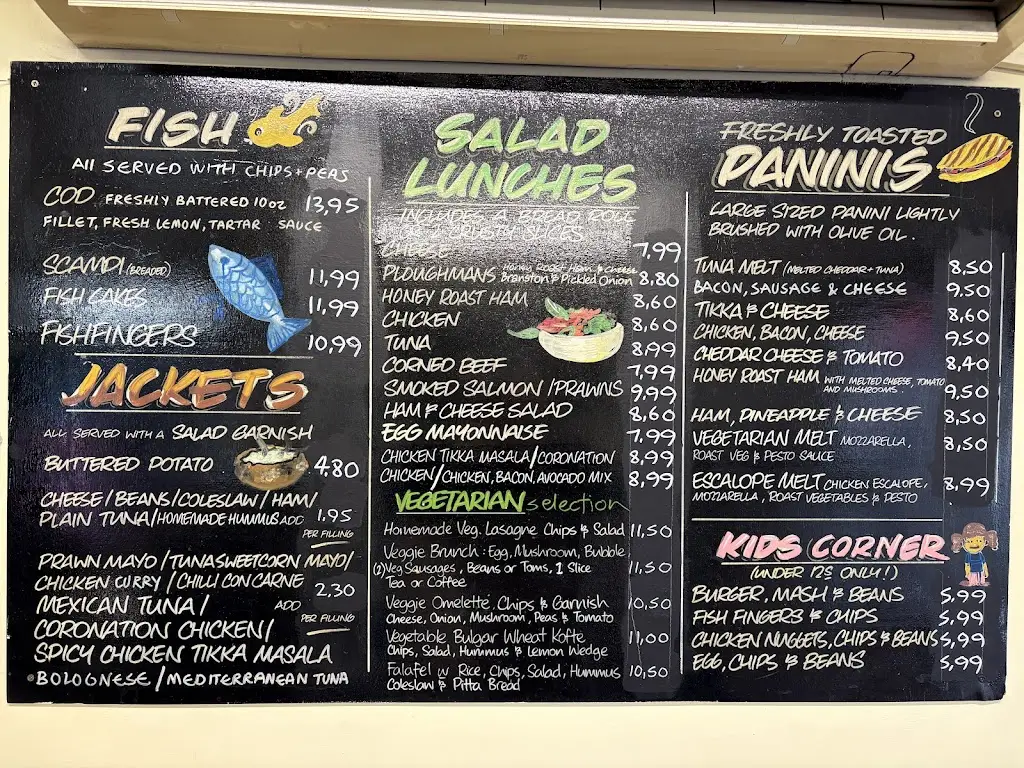 FISH
All SERVED WITH CHIPS + PEAS
COD FRESHLY BATTERED 10oz 13,95
FILLET, FRESH LEMON, TARTAR SAUCE
SCAMPI (BREADED) 11,99
FISH CAKES 11,99
FISHFINGERS 10,99
JACKETS
ALL SERVED WITH A SALAD GARNISH
BUTTERED POTATO 4.80
CHEESE/BEANS/COLESLAW/HAM/
PLAIN TUNA/HOMEMADE HUMMUS ADD 1.95
PER FILLING
PRAWN MAYO/TUNASWEETCORN MAYO/
CHICKEN CURRY/CHILLI CON CARNE 2.30
MEXICAN TUNA/ ADD
PER FILLING
CORONATION CHICKEN/
SPICY CHICKEN TIKKA MASALA
BOLOGNESE/MEDITERRANEAN TUNA
SALAD
LUNCHES
INCLUDES A BREAD ROLL
OR 2 CRUSTY SLICES
CHEESE 7,99
PLOUGHMANS Honey Roast Ham & Cheese
Branston & Pickled Onion 8,80
HONEY ROAST HAM 8,60
CHICKEN 8,60
TUNA 8,99
CORNED BEEF 7,99
SMOKED SALMON/PRAWNS 9,99
HAM & CHEESE SALAD 8,60
EGG MAYONNAISE 7,99
CHICKEN TIKKA MASALA/CORONATION 8,99
CHICKEN/CHICKEN, BACON, AVOCADO MIX 8,99
VEGETARIAN selection
Homemade Veg. Lasagne Chips & Salad 11,50
Veggie Brunch: Egg, Mushroom, Bubble,
(2) Veg Sausages, Beans or Toms, 1 Slice 11,50
Tea or Coffee
Veggie Omelette, Chips & Garnish 10,50
Cheese, Onion, Mushroom, Peas & Tomato
Vegetable Bulgar Wheat Kofte 11,00
Chips, Salad, Hummus & Lemon Wedge
Falafel w Rice, Chips, Salad, Hummus 10,50
Coleslaw & Pitta Bread
FRESHLY TOASTED
PANINIS
LARGE SIZED PANINI LIGHTLY
BRUSHED WITH OLIVE OIL.
TUNA MELT (MELTED CHEDDAR + TUNA) 8,50
BACON, SAUSAGE & CHEESE 9,50
TIKKA & CHEESE 8,60
CHICKEN, BACON, CHEESE 9,50
CHEDDAR CHEESE & TOMATO 8,40
HONEY ROAST HAM WITH MELTED CHEESE, TOMATO
AND MUSHROOMS. 9,50
HAM, PINEAPPLE & CHEESE 8,50
VEGETARIAN MELT MOZZARELLA, 8,50
ROAST VEG & PESTO SAUCE
ESCALOPE MELT CHICKEN ESCALOPE, 8,99
MOZZARELLA, ROAST VEGETABLES & PESTO
KIDS CORNER
(UNDER 12S ONLY!)
BURGER, MASH & BEANS 5,99
FISH FINGERS & CHIPS 5,99
CHICKEN NUGGETS, CHIPS & BEANS 5,99
EGG, CHIPS & BEANS 5,99